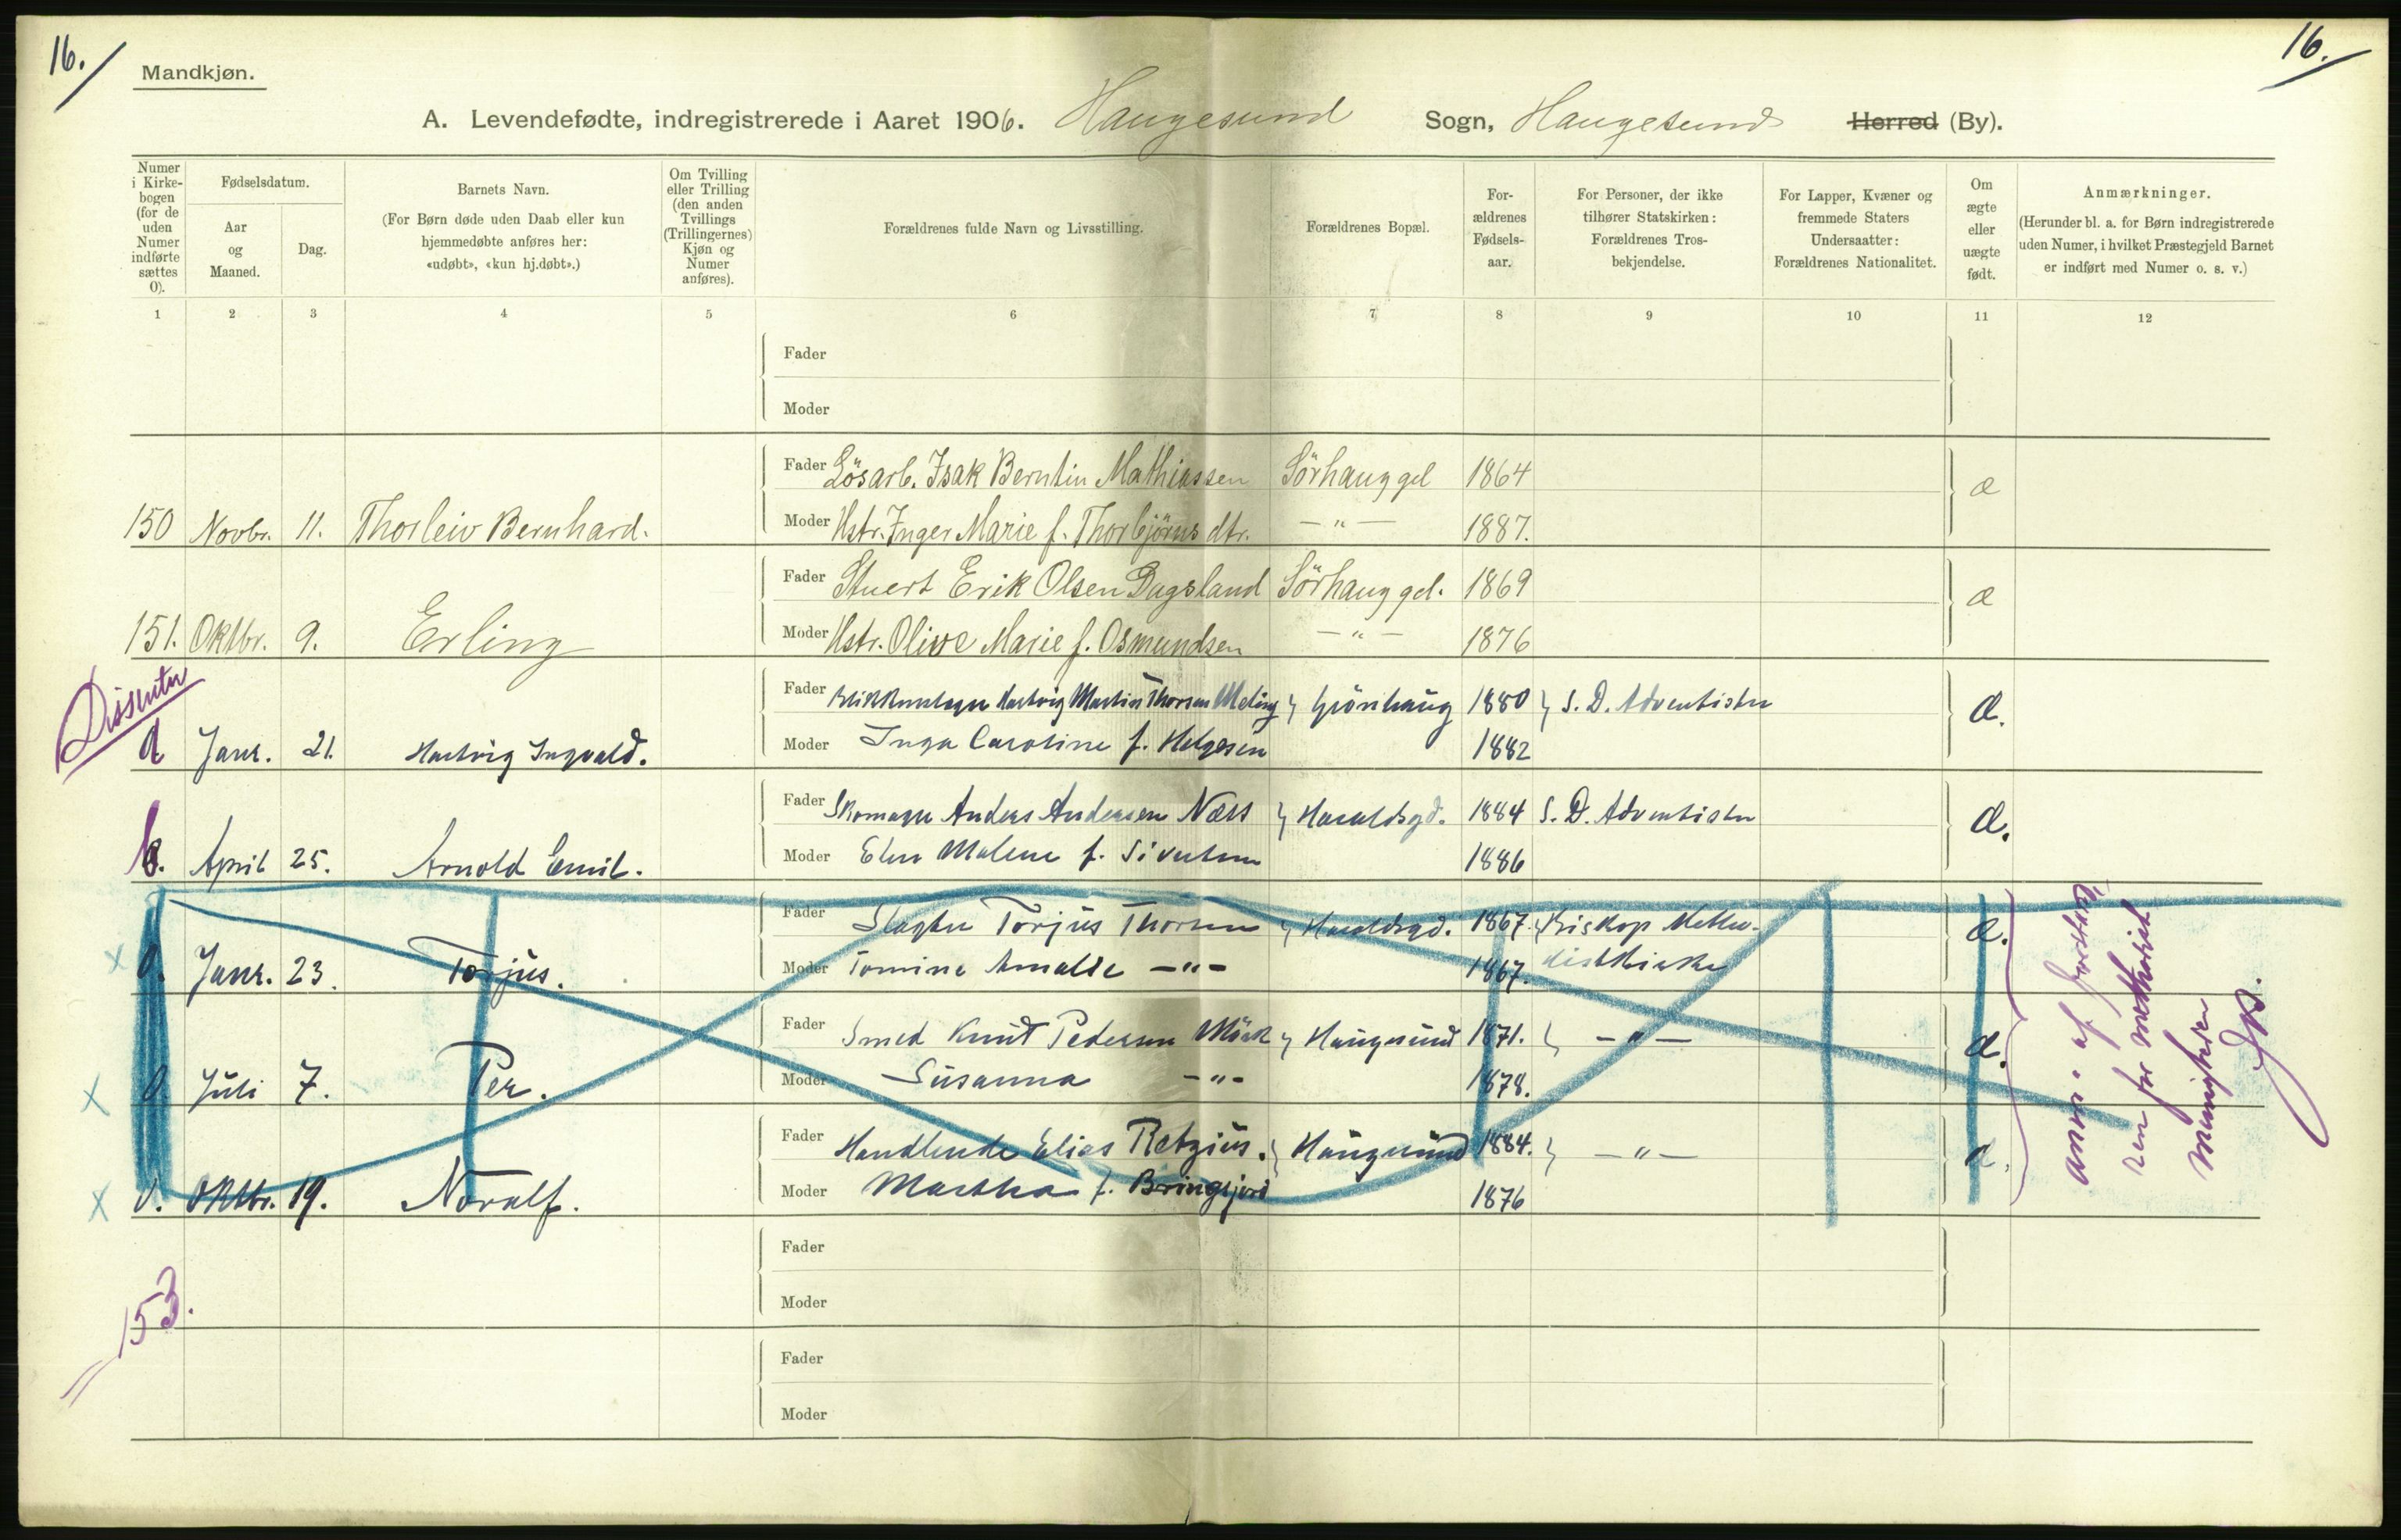 16.
16.
Mandkjøn.
A. Levendefødte, indregistrerede i Aaret 1906. Haugesund Sogn, Haugesund Herred (By).
Numer
i Kirke-
bogen
(for de
uden
Numer
indførte
sættes
0).
Fødselsdatum.
Aar
og
Maaned.
Dag.
Barnets Navn.
(For Børn døde uden Daab eller kun
hjemmedøbte anføres her:
«udøbt», «kun hj.døbt».)
Om Tvilling
eller Trilling
(den anden
Tvillings
(Trillingernes)
Kjøn og
Numer
anføres).
Forældrenes fulde Navn og Livsstilling.
Forældrenes Bopæl.
For-
ældrenes
Fødsels-
aar.
For Personer, der ikke
tilhører Statskirken:
Forældrenes Tros-
bekjendelse.
For Lapper, Kvæner og
fremmede Staters
Undersaatter:
Forældrenes Nationalitet.
Om
ægte
eller
uægte
født.
Anmærkninger.
(Herunder bl. a. for Børn indregistrerede
uden Numer, i hvilket Præstegjeld Barnet
er indført med Numer o. s. v.)
1 2 3 4 5 6 7 8 9 10 11 12
Fader
Moder
Fader Lösarb. Isak Berntin Mathiassen Sörhauggd 1864 æ
150 Novbr. 11. Thorleiv Bernhard. Moder Hstr. Inger Marie f. Thorbjörns dtr. —"— 1887.
Fader Stuert Erik Olsen Dagsland Sörhauggd. 1869 æ
151. Oktbr. 9. Erling Moder Hstr. Olive Marie f. Osmundsen —"— 1876
Dissenter
Fader Hartvig Martin Thorsen Meling Grönhaug 1880 S. D. Adventister æ.
a Janr. 21. Hartvig Ingvald. Moder Inga Caroline f. Helgesen 1882
Fader Skomager Anders Andersen Næss Haraldsgd. 1884 S. D. Adventister æ.
b. April 25. Arnold Emil. Moder Elen Malene f. Sivertsen 1886
Fader Slagter Torjus Thorsen Haraldsgd. 1867. Biskop Metho- æ.
0. Janr. 23. Torjus. Moder Tomine Amalie —"— 1867. distkirke
Fader Smed Knut Pedersen Mörk Haugesund 1871. —"— æ.
0. Juli 7. Per. Moder Susanna —"— 1878.
Fader Handlende Elias Retzius. Haugesund 1884. —"— æ.
0. Oktbr. 19. Noralf. Moder Martha f. Bringsjord 1876
anm. af
ren for methodist
menigheden
Fader
Moder
153.
Fader
Moder